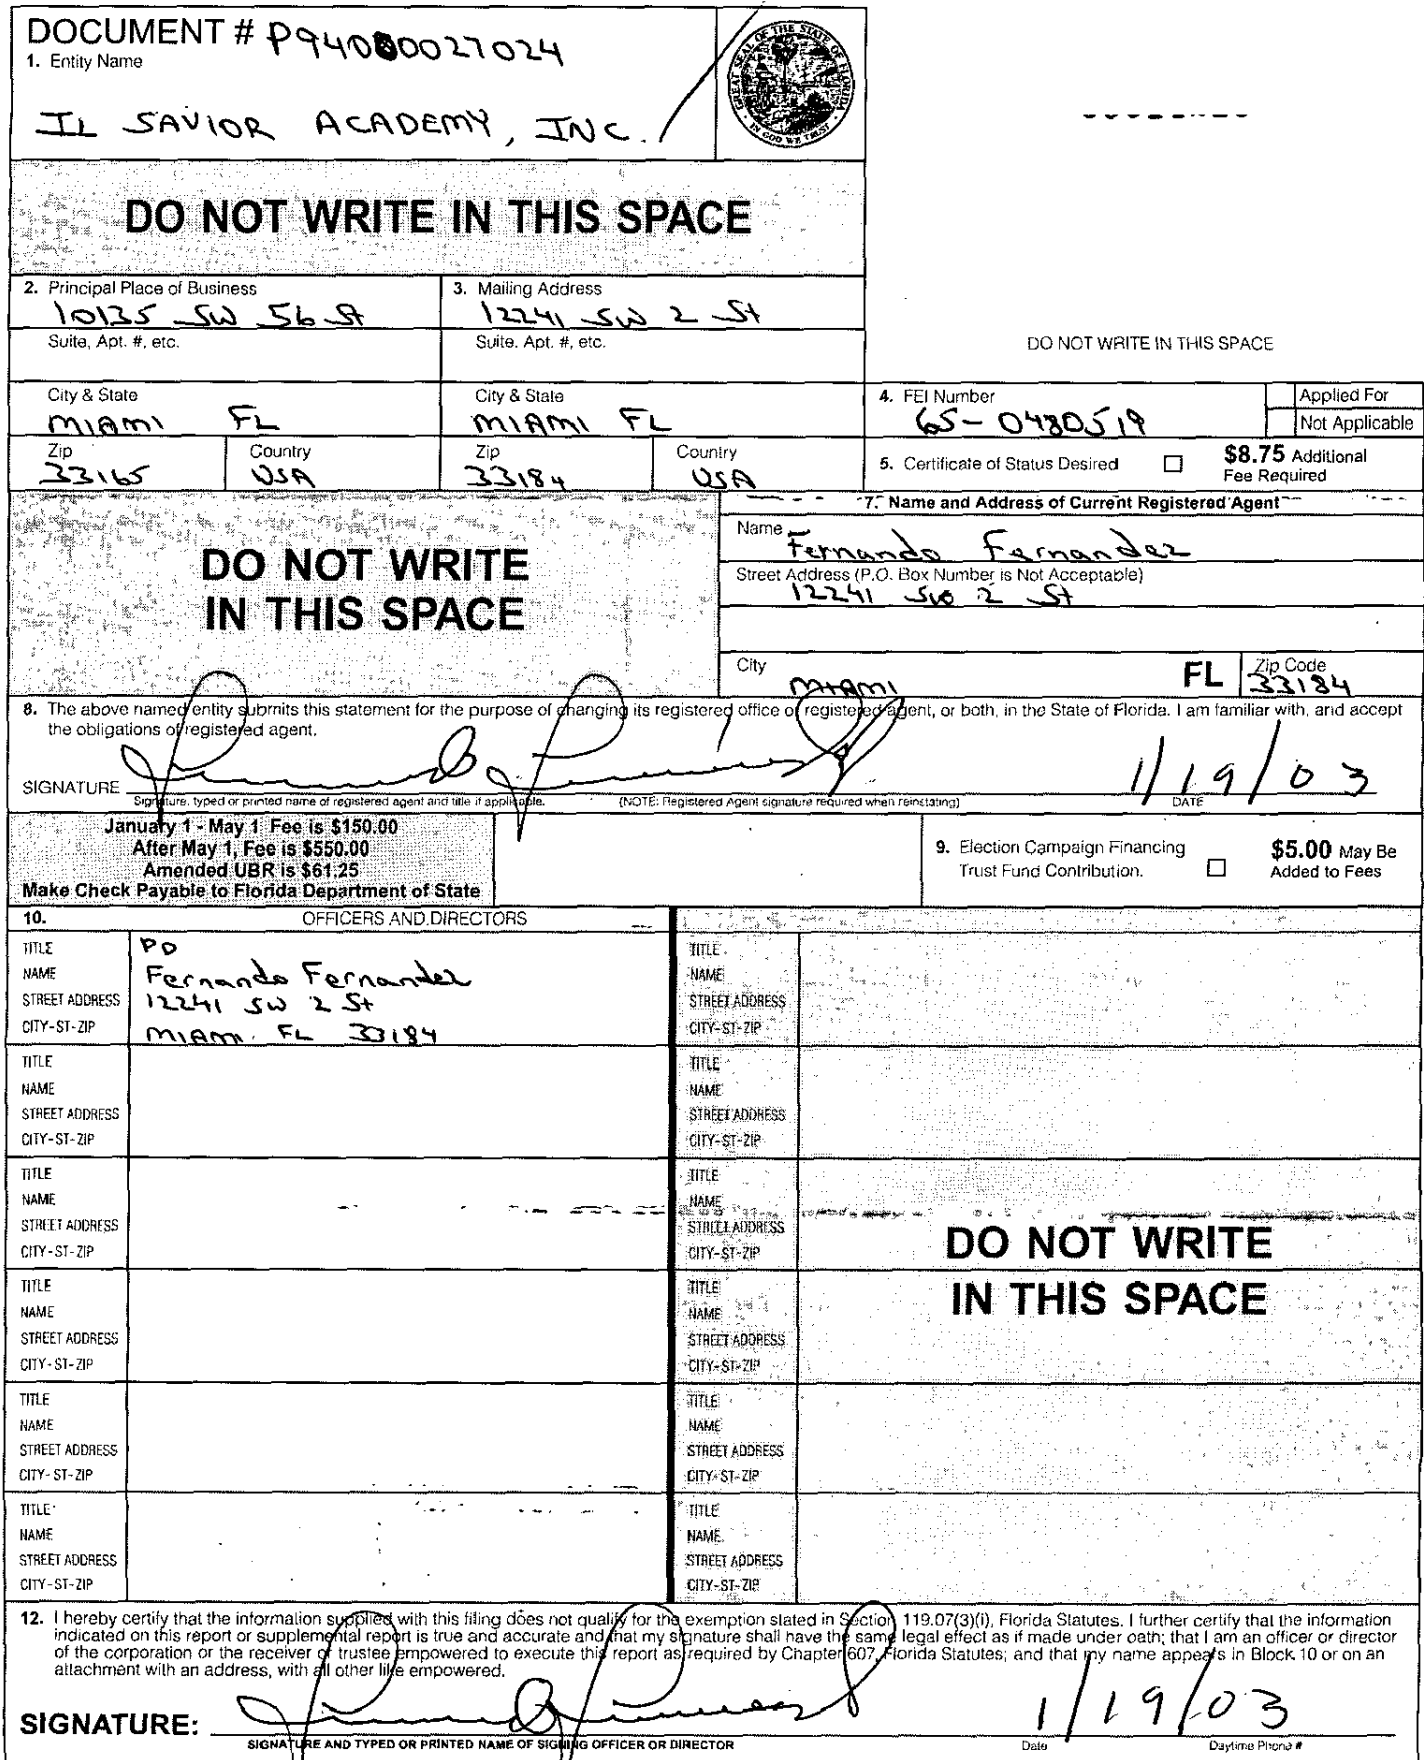 DOCUMENT # P94000027024
1. Entity Name
IL SAVIOR ACADEMY, INC.
GREAT SEAL OF THE STATE OF FLORIDA
IN GOD WE TRUST
DO NOT WRITE IN THIS SPACE
2. Principal Place of Business
10135 SW 56 St
3. Mailing Address
12241 SW 2 St
Suite, Apt. #, etc.
Suite. Apt. #, etc.
DO NOT WRITE IN THIS SPACE
City & State
MIAMI FL
City & State
MIAMI FL
4. FEI Number
65-0480519
Applied For
Not Applicable
Zip
33165
Country
USA
Zip
33184
Country
USA
5. Certificate of Status Desired
$8.75 Additional
Fee Required
DO NOT WRITE
IN THIS SPACE
7. Name and Address of Current Registered Agent
Name
Fernando Fernandez
Street Address (P.O. Box Number is Not Acceptable)
12241 SW 2 St
City
MIAMI
FL
Zip Code
33184
8. The above named entity submits this statement for the purpose of changing its registered office or registered agent, or both, in the State of Florida. I am familiar with, and accept
the obligations of registered agent.
SIGNATURE
1/19/03
Signature, typed or printed name of registered agent and title if applicable.
(NOTE: Registered Agent signature required when reinstating)
DATE
January 1 - May 1 Fee is $150.00
After May 1, Fee is $550.00
Amended UBR is $61.25
Make Check Payable to Florida Department of State
9. Election Campaign Financing
Trust Fund Contribution.
$5.00 May Be
Added to Fees
10. OFFICERS AND DIRECTORS
TITLE PD
NAME Fernando Fernandez
STREET ADDRESS 12241 SW 2 St
CITY-ST-ZIP MIAMI FL 33184
TITLE
NAME
STREET ADDRESS
CITY-ST-ZIP
TITLE
NAME
STREET ADDRESS
CITY-ST-ZIP
TITLE
NAME
STREET ADDRESS
CITY-ST-ZIP
TITLE
NAME
STREET ADDRESS
CITY-ST-ZIP
TITLE
NAME
STREET ADDRESS
CITY-ST-ZIP
TITLE
NAME
STREET ADDRESS
CITY-ST-ZIP
TITLE
NAME
STREET ADDRESS
CITY-ST-ZIP
TITLE
NAME
STREET ADDRESS
CITY-ST-ZIP
TITLE
NAME
STREET ADDRESS
CITY-ST-ZIP
TITLE
NAME
STREET ADDRESS
CITY-ST-ZIP
TITLE
NAME
STREET ADDRESS
CITY-ST-ZIP
DO NOT WRITE
IN THIS SPACE
12. I hereby certify that the information supplied with this filing does not qualify for the exemption stated in Section 119.07(3)(i), Florida Statutes. I further certify that the information
indicated on this report or supplemental report is true and accurate and that my signature shall have the same legal effect as if made under oath; that I am an officer or director
of the corporation or the receiver or trustee empowered to execute this report as required by Chapter 607, Florida Statutes; and that my name appears in Block 10 or on an
attachment with an address, with all other like empowered.
SIGNATURE:
1/19/03
SIGNATURE AND TYPED OR PRINTED NAME OF SIGNING OFFICER OR DIRECTOR
Date
Daytime Phone #